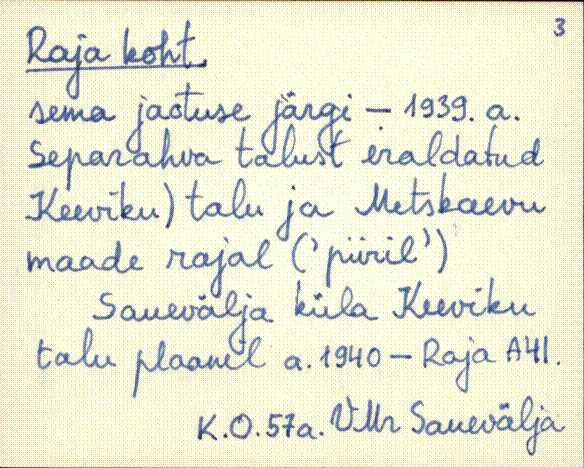 3
Raja koht
sema jaotuse järgi – 1939. a.
Separahva talust eraldatud
Keeviku) talu ja Metskaevu
maade rajal ('piiril')
Sauevälja küla Keeviku
talu plaanil a. 1940 – Raja A41.
K.O.57a. VMr Sauevälja